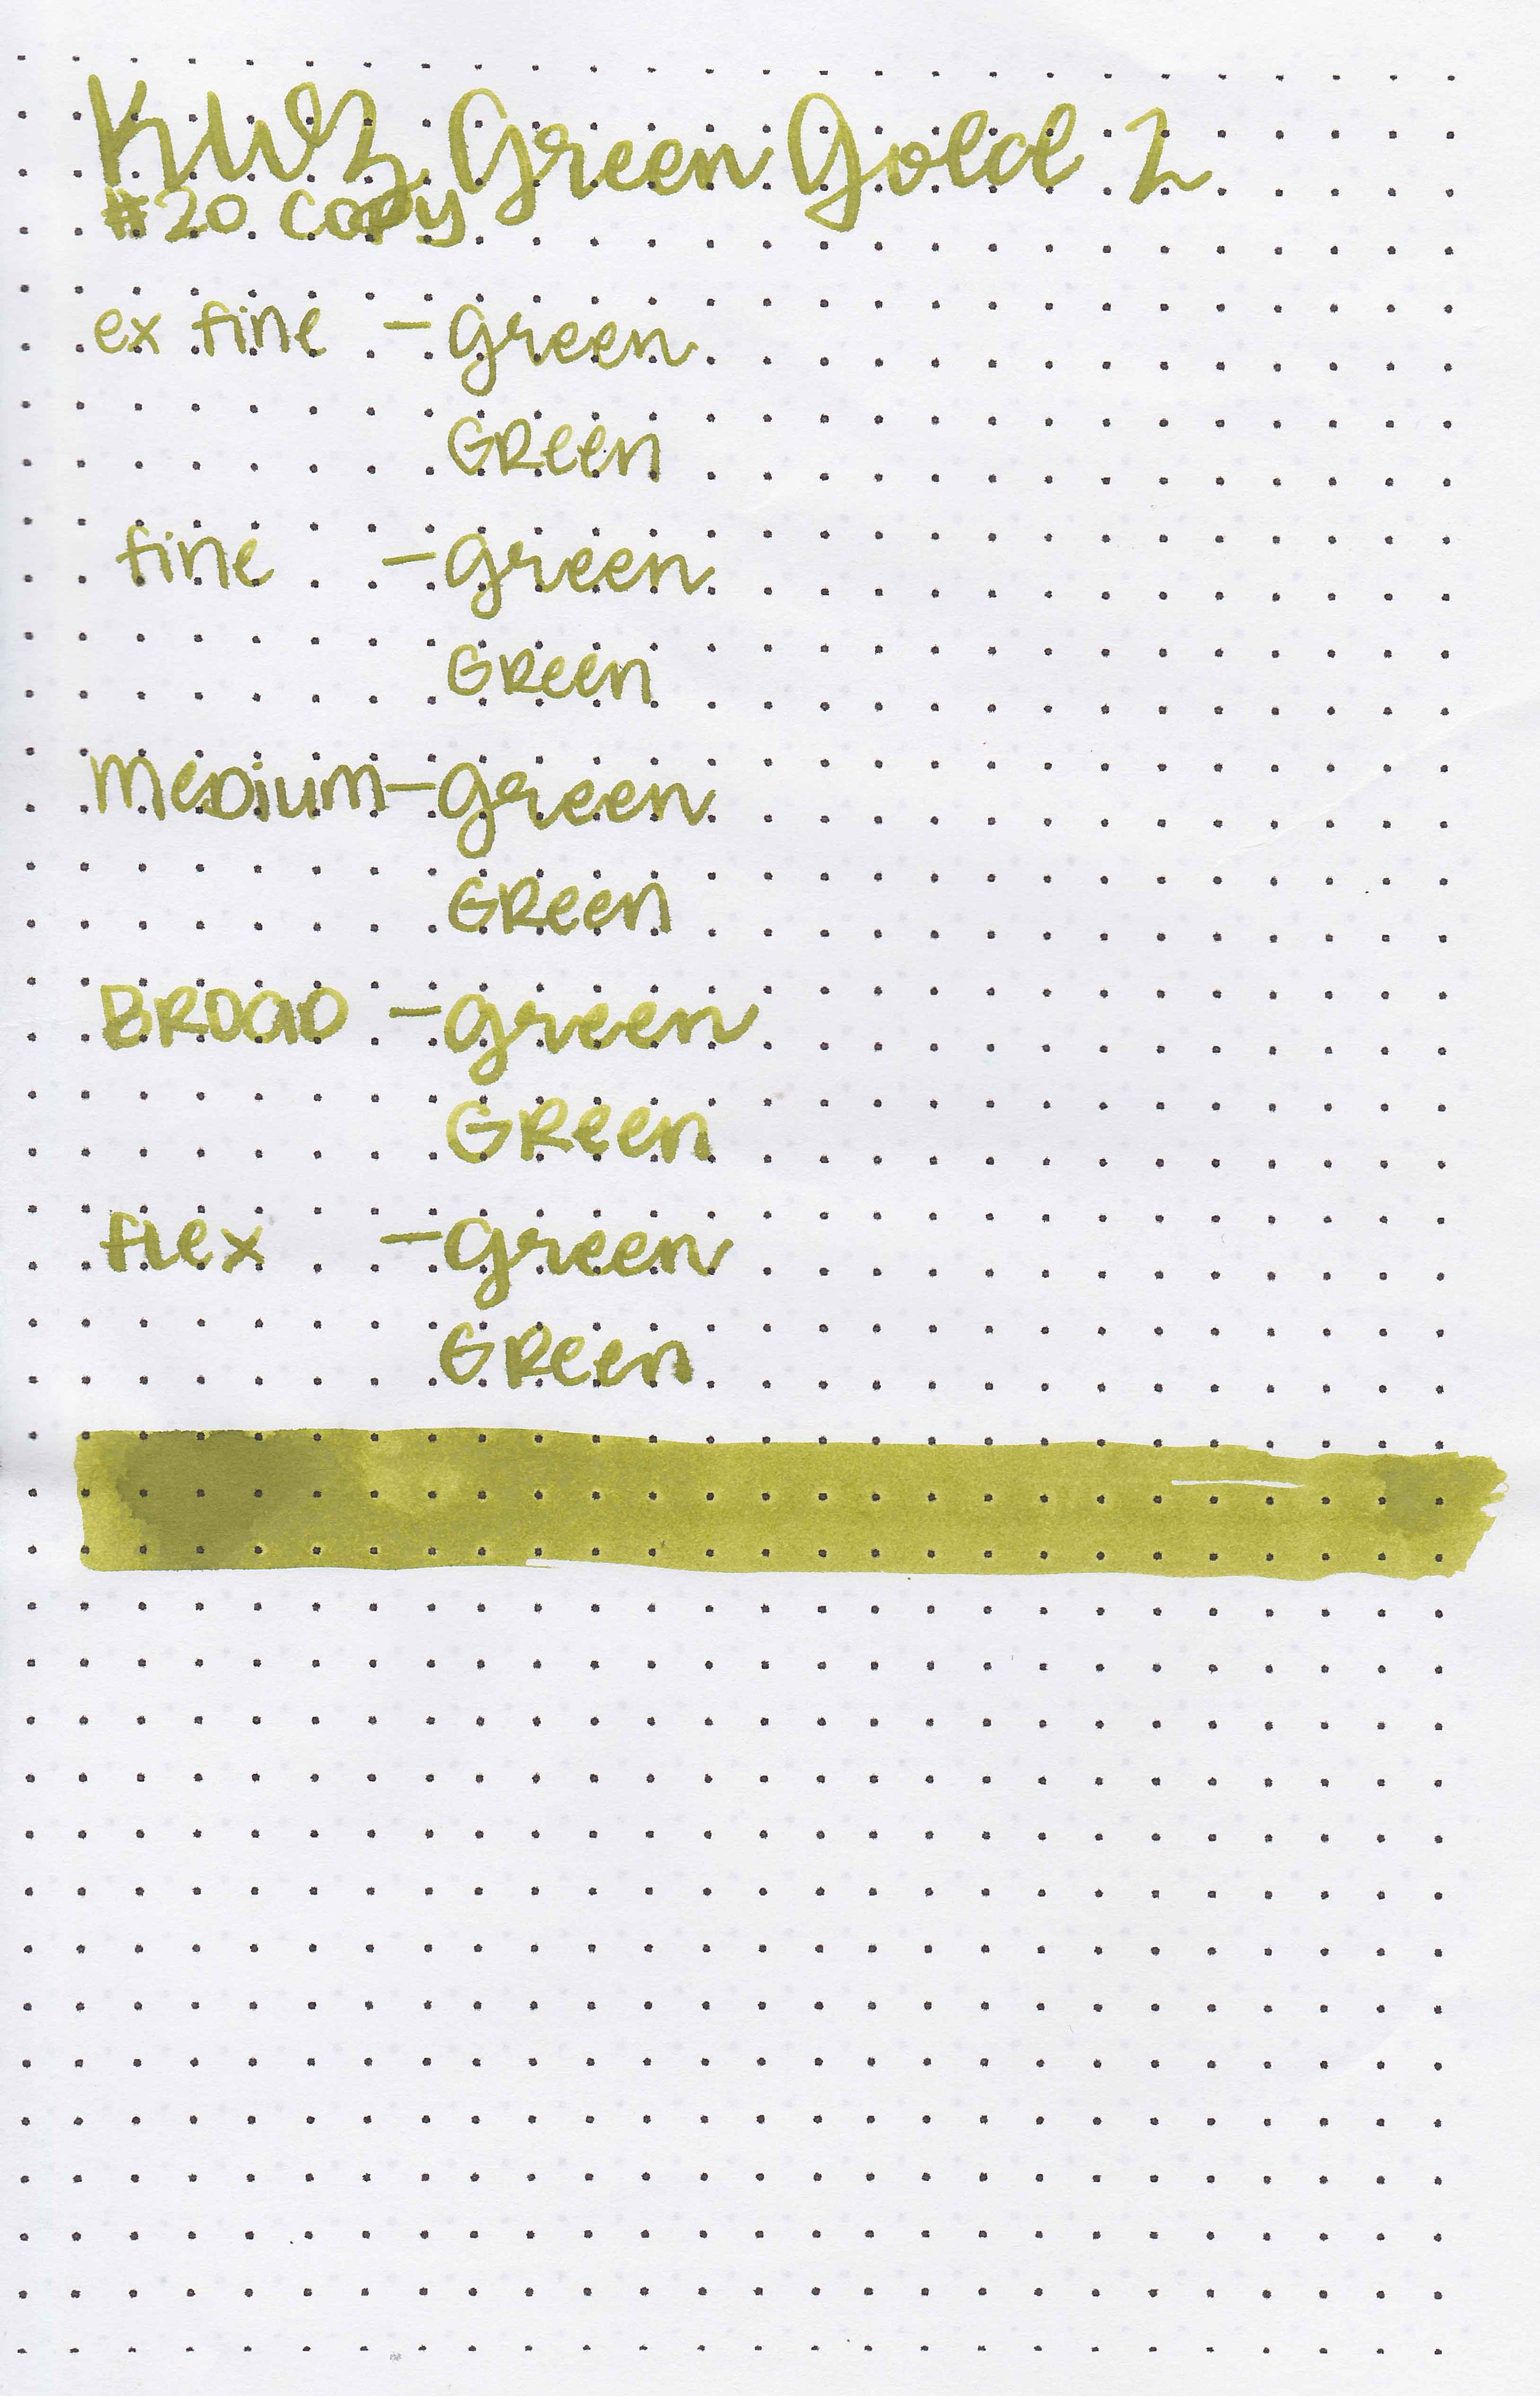 KWZ Green Gold 2
#20 copy
ex fine - green
GReen
fine - green
GReen
Medium - green
GReen
BROAD - green
GReen
flex - green
GReen